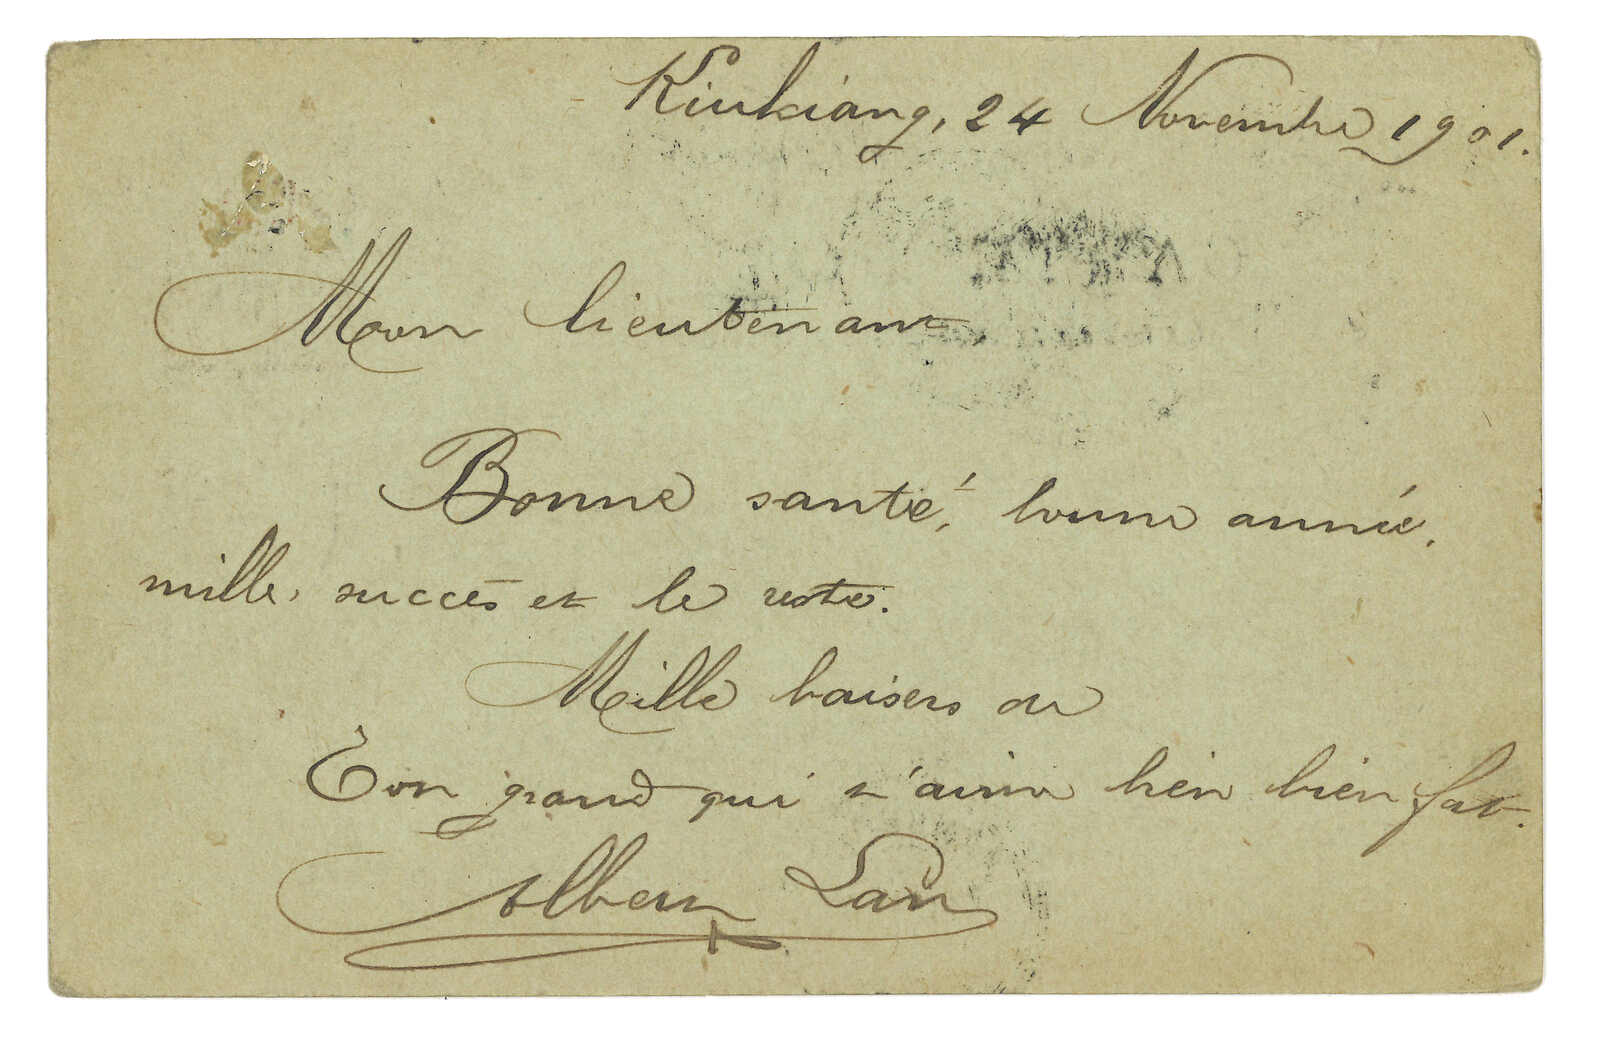 Kiukiang, 24 Novembre 1901.
Mon lieutenant
Bonne santé, bonne année,
mille succès et le reste.
Mille baisers de
Ton grand qui t'aime bien bien fort.
Albert